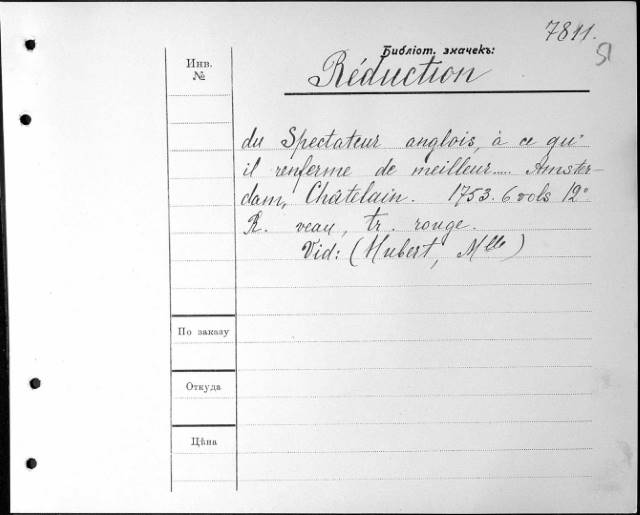 7811.
51
Библіот. значекъ:
Réduction
Инв.
№
du Spectateur anglois, à ce qu'
il renferme de meilleur..... Amster-
dam, Châtelain. 1753. 6 vols 12º
R. veau, tr. rouge.
Vid: (Hubert, Mlle)
По заказу
Откуда
Цѣна